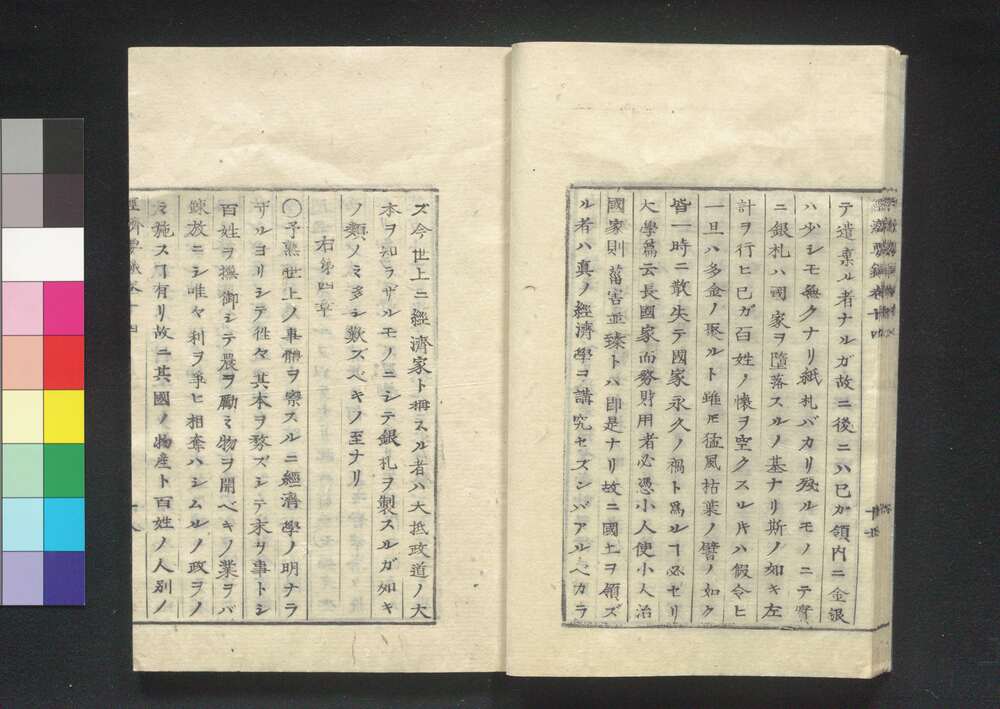 テ遺棄ル者ナルガ故ニ後ニハ已ガ領内ニ金銀
ハ少シモ無クナリ紙札バカリ殘ルモノニテ實
ニ銀札ハ國家ヲ墮落スルノ基ナリ斯ノ如キ左
計ヲ行ヒ已ガ百姓ノ懷ヲ空クスル片ハ假令ヒ
一旦ハ多金ノ聚ルト雖𪜈猛風枯葉ノ譬ノ如ク
皆一時ニ散失テ國家永久ノ禍ト爲ルヿ必セリ
大學篇云長國家而務財用者必憑小人使小人治
國家則菑害並臻トハ卽是ナリ故ニ國土ヲ領ズ
ル者ハ真ノ經濟學コ講究セズンバアルベカラ
ズ今世上ニ經濟家ト稱スル者ハ大抵政道ノ大
本ヲ知ラザルモノニシテ銀札ヲ製スルガ如キ
ノ類ノミ多シ歎ズベキノ至ナリ
右第四章
〇予熟世上ノ事體ヲ察スルニ經濟學ノ明ナラ
ザルヨリシテ徃々其本ヲ務ズシテ末ヲ事トシ
百姓ヲ撫御シテ農ヲ勵ミ物ヲ開ベキノ業ヲバ
踈放ニシ唯々利ヲ爭ヒ相奪ハシムルノ政ヲノ
ミ施スヿ有リ故ニ其國ノ物産ト百姓ノ人別ノ